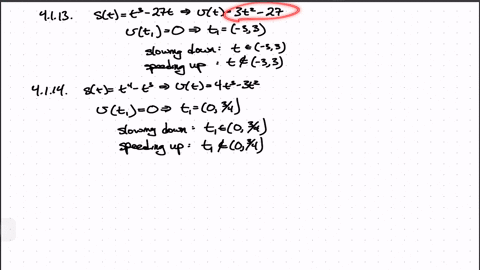 4.1.13. s(t)=t³-27t ⇒ v(t)=3t²-27
v(t₁)=0 ⇒ t₁=(-3,3)
slowing down: t∈(-3,3)
speeding up: t∉(-3,3)
4.1.14. s(t)=t⁴-t³ ⇒ v(t)=4t³-3t²
v(t₁)=0 ⇒ t₁=(0,3/4)
slowing down: t₁∈(0,3/4)
speeding up: t₁∉(0,3/4)